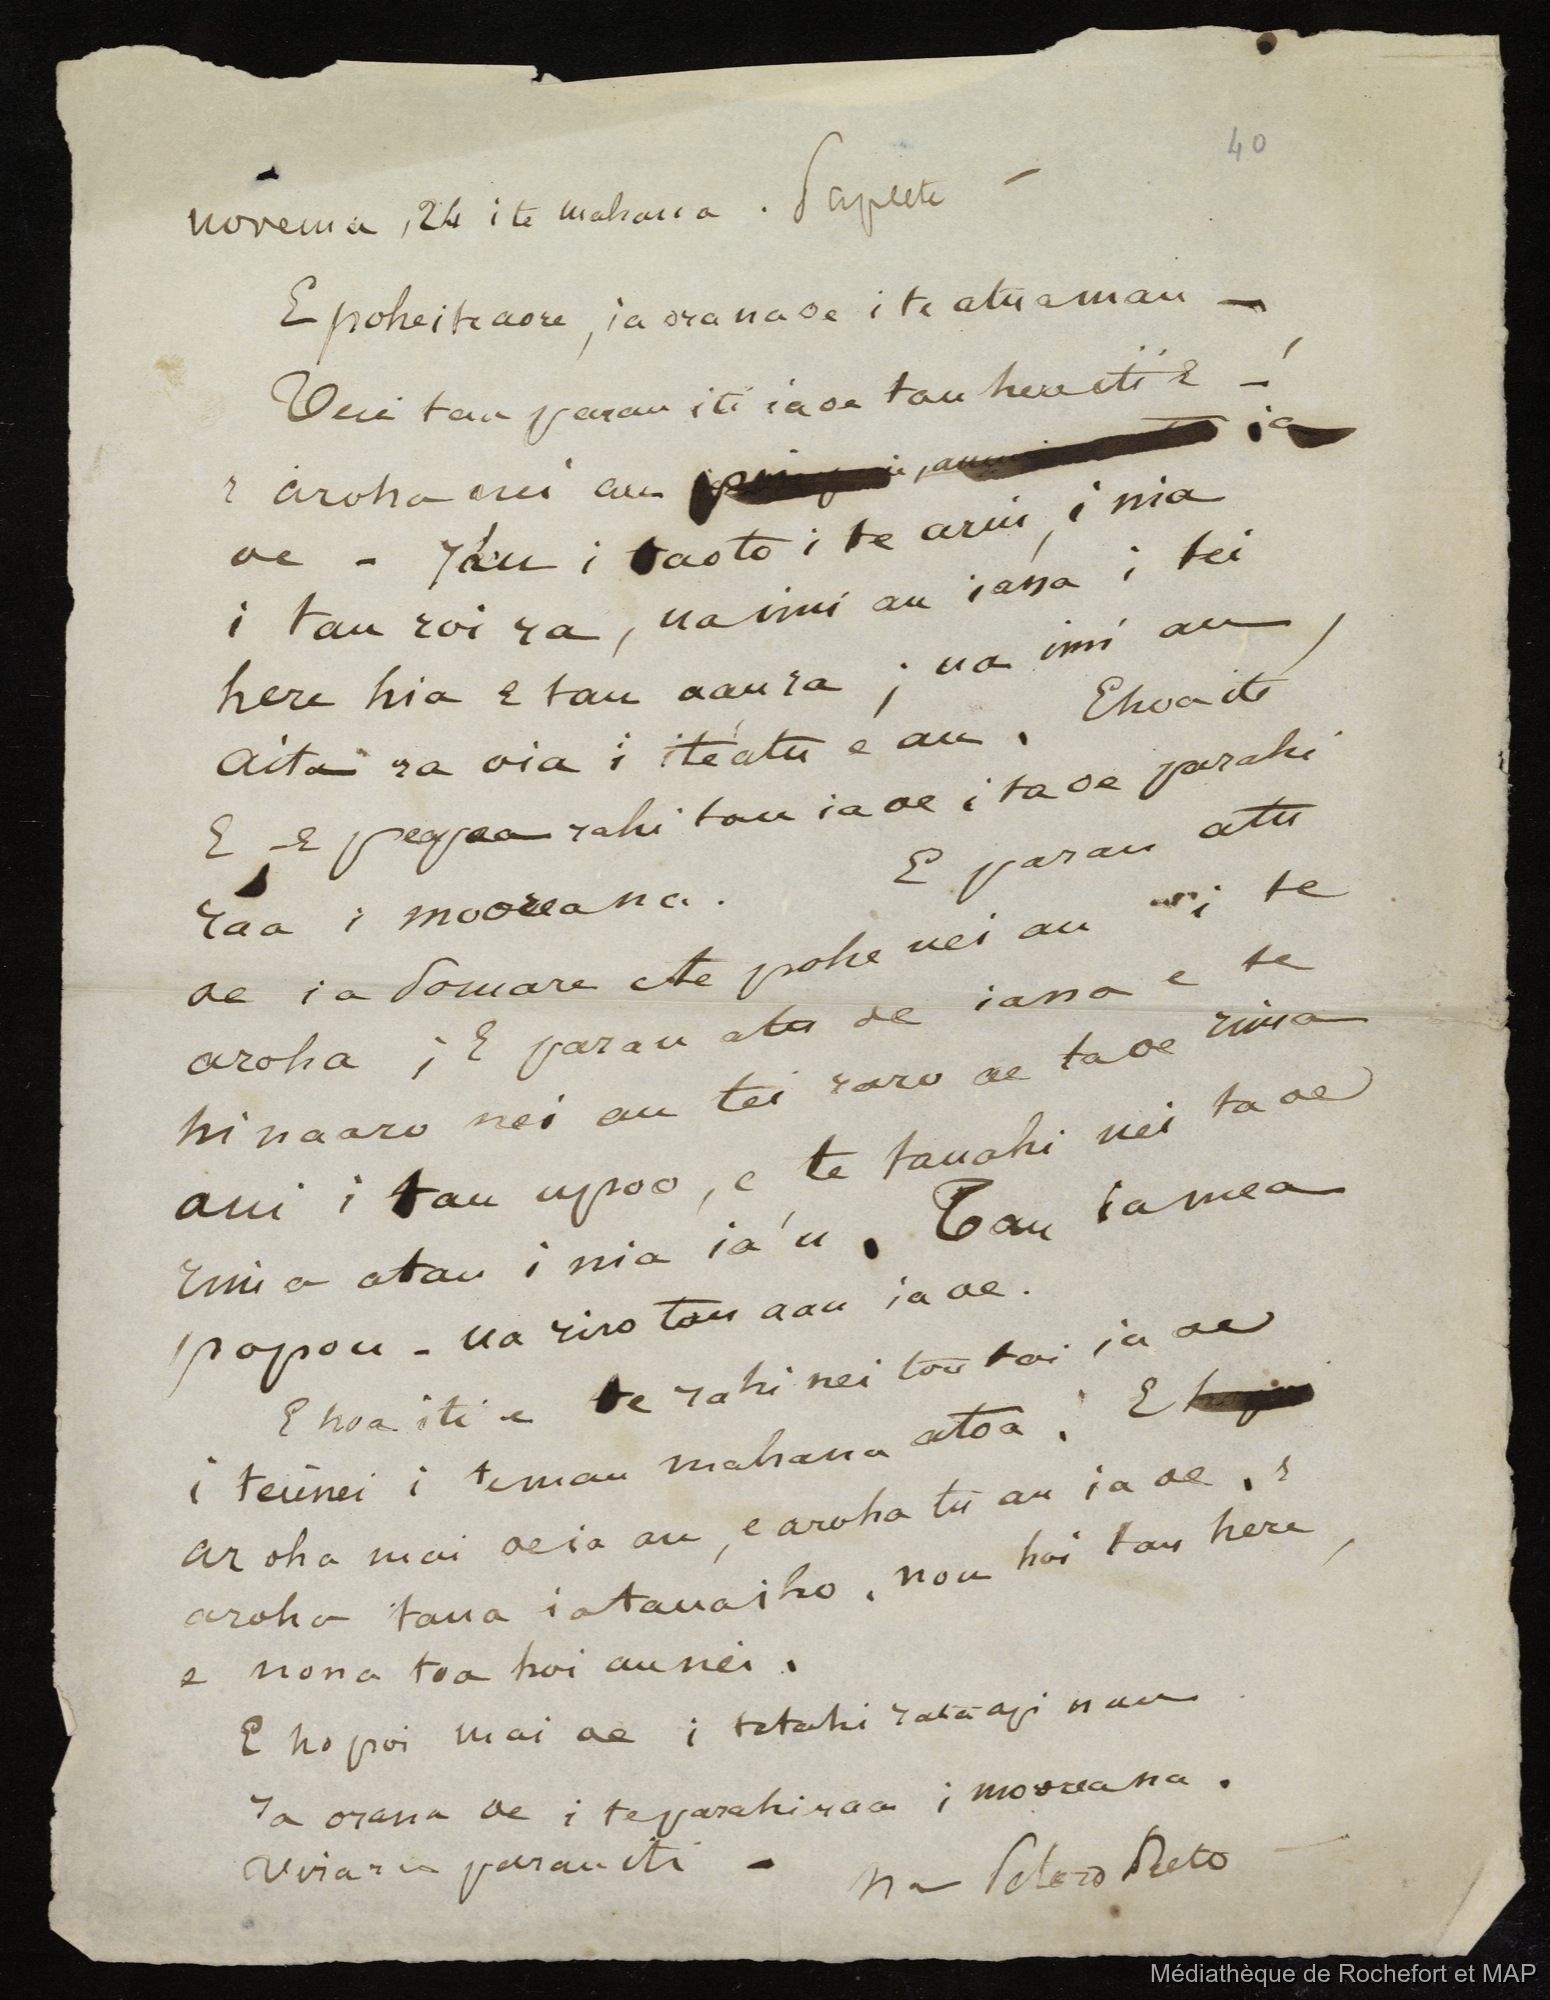 40
novema, 24 ite mahana . Papeete –
E poheiteaore, ia orana oe i te atuamau –
Veie tau parau iti ia oe tau here iti e – !
e aroha nei au ia
oe – Ia'u i taoto i te arui, i nia
i tau roi ra, ua imi au iana i tei
here hia e tau aau ra ; ua imi au,
aita ra oia i iteatu e au . Ehoa iti
E – E peapea rahi tau ia oe i ta oe parahi
raa i mooreana . E parau atu
oe ia Pomare e te pohe nei au i te
aroha ; E parau atu oe iana e te
hinaaro nei au tei raro ae ta oe rima
aui i tau upoo, e te tauahi nei ta oe
rima atau i nia ia'u . Tau ia mea
popou – ua riro tau aau ia oe .
E hoa iti e te rahi nei tou tai ia oe
i teienei i te mau mahana atoa ; E
aroha mai oe ia au, e aroha tu au ia oe . e
aroha taua ia tauaiho . nou hoi tau here,
e nona toa hoi au nei .
E hopoi mai oe i tetahi rata api nau
Ia orana oe i te parahiraa i mooreana .
Tirara parau iti – na